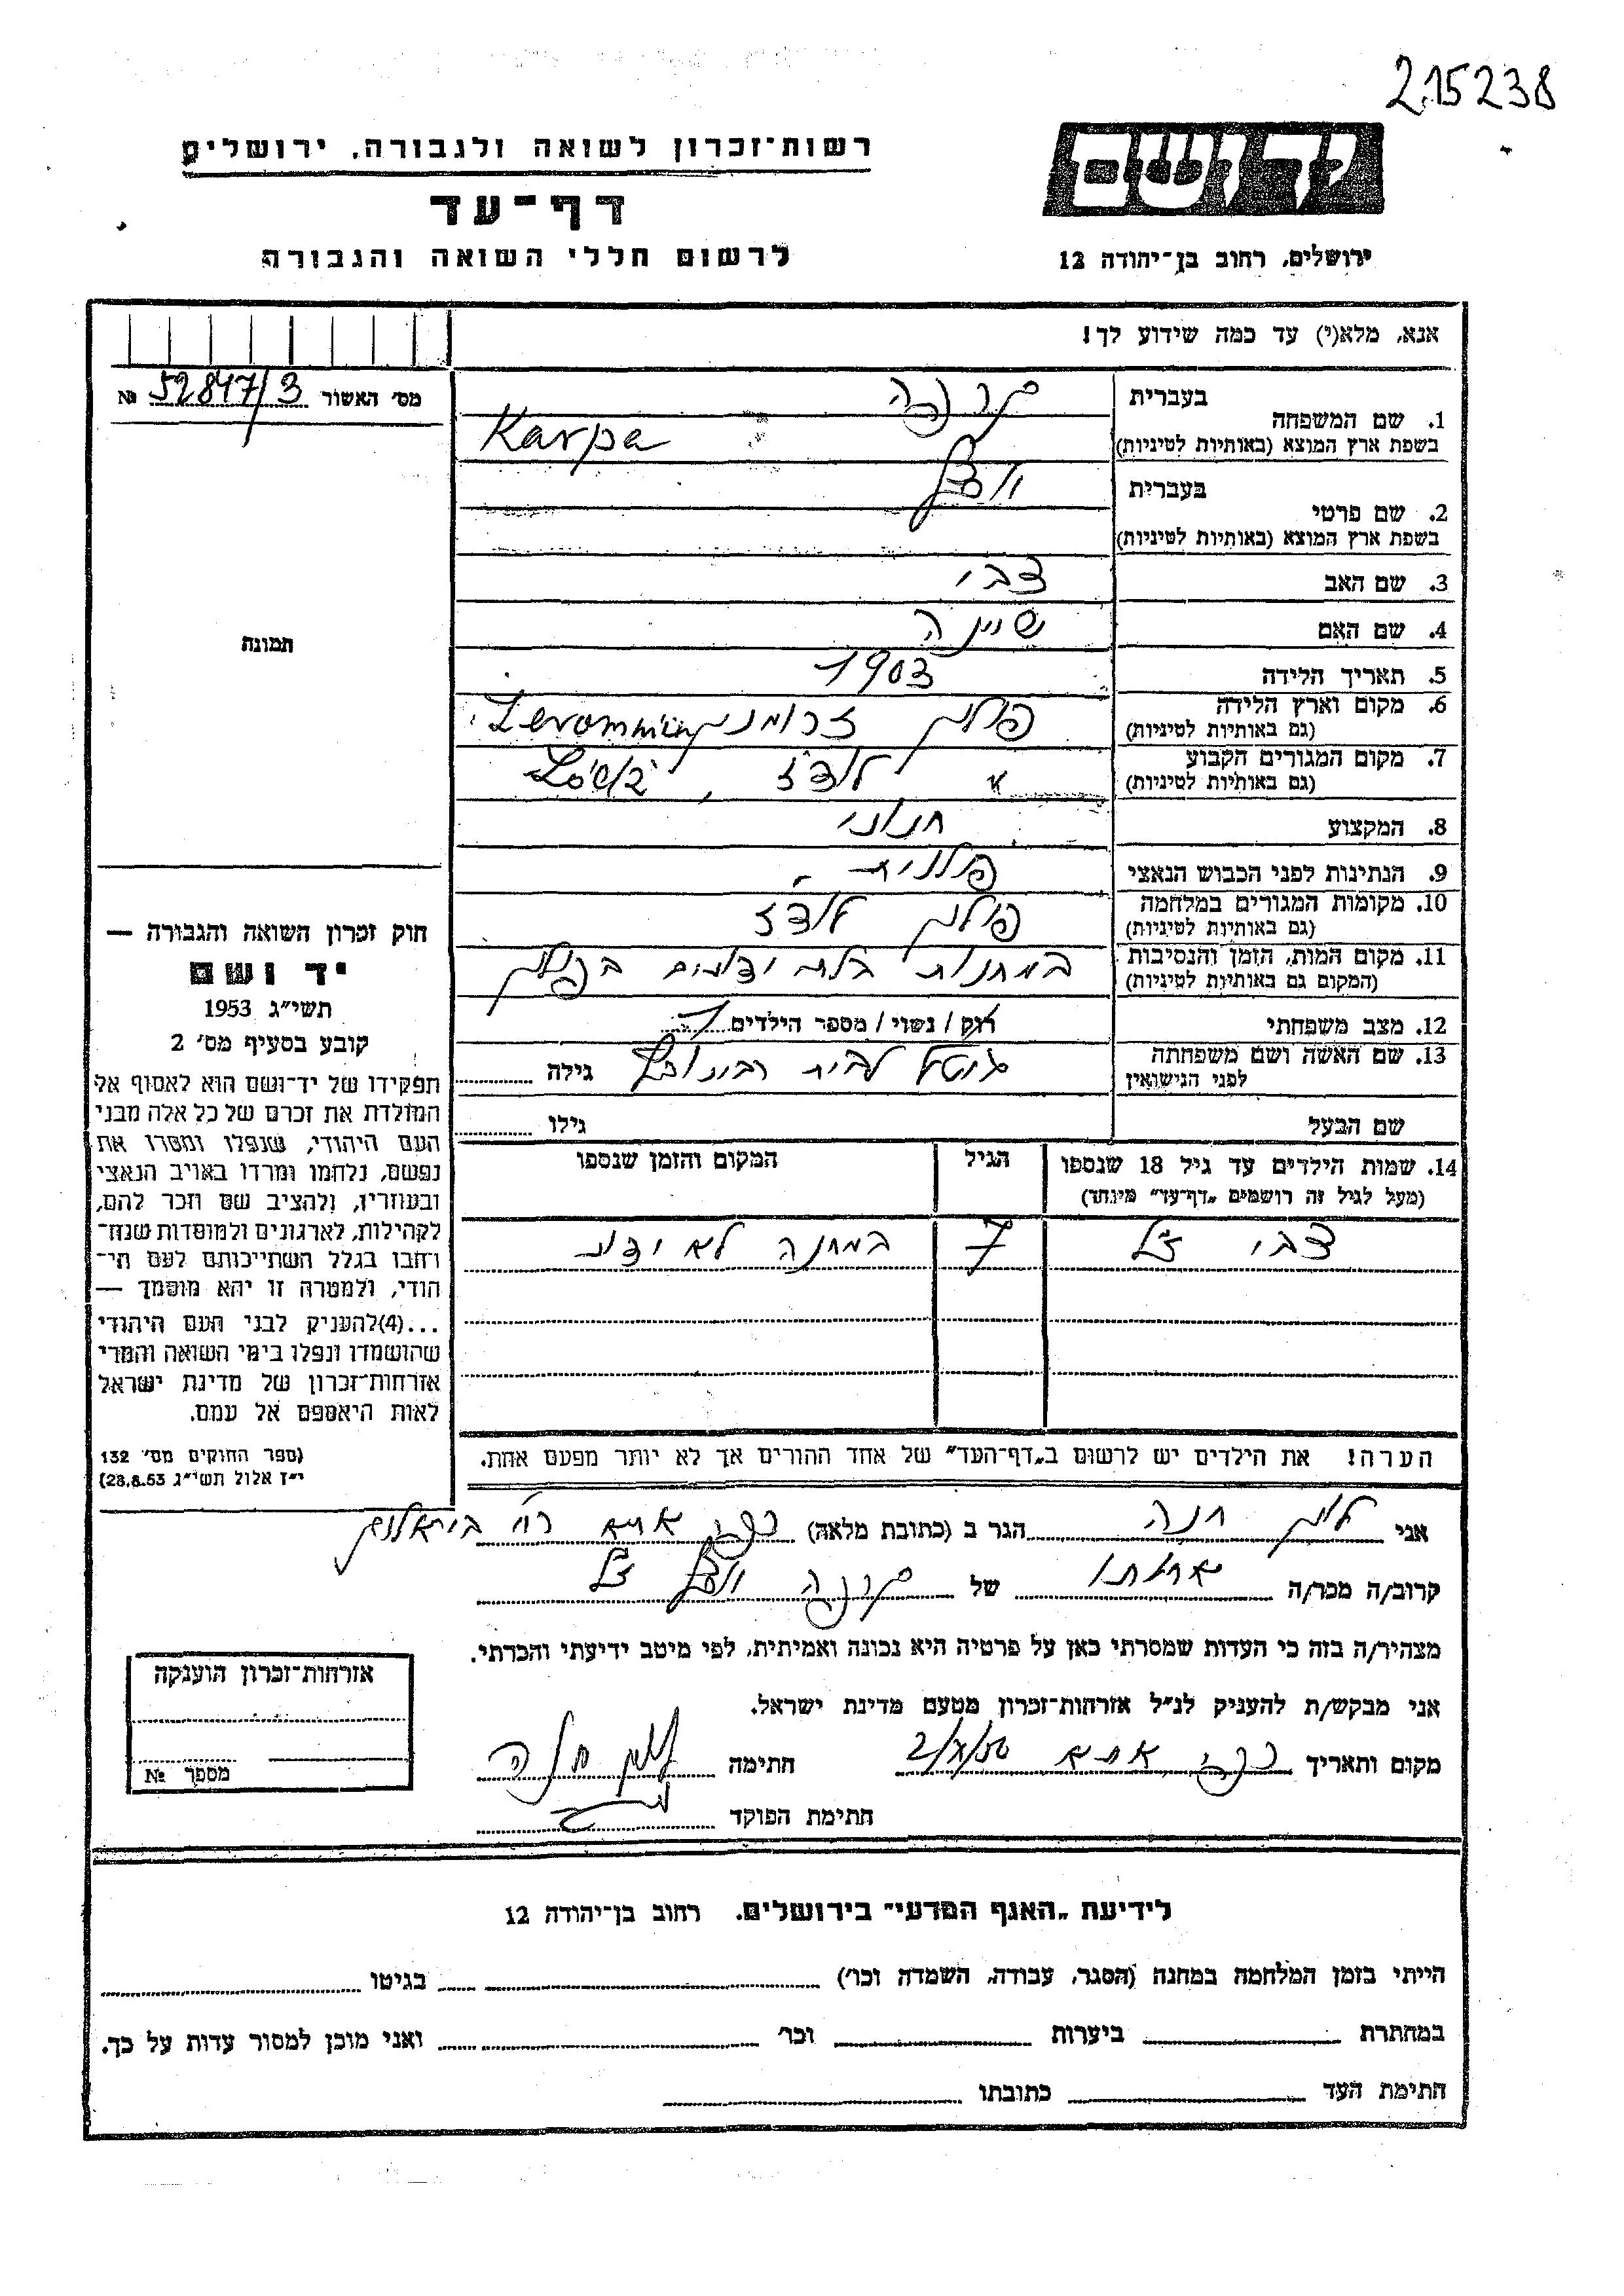 215238
רשות־זכרון לשואה ולגבורה, ירושלים
דף־עד
לרשום חללי השואה והגבורה
יד ושם
ירושלים, רחוב בן־יהודה 12
אנא, מלא(י) עד כמה שידוע לך!
מס׳ האשור 52847/3 №
תמונה
חוק זכרון השואה והגבורה —
יד ושם
תשי״ג 1953
קובע בסעיף מס׳ 2
תפקידו של יד־ושם הוא לאסוף אל
המולדת את זכרם של כל אלה מבני
העם היהודי, שנפלו ומסרו את
נפשם, נלחמו ומרדו באויב הנאצי
ובעוזריו, ולהציב שם וזכר להם,
לקהילות, לארגונים ולמוסדות שנח־
רחבו בגלל השתייכותם לעם הי־
הודי, ולמטרה זו יהא מוסמך —
...(4)להעניק לבני העם היהודי
שהושמדו ונפלו בימי השואה והמרי
אזרחות־זכרון של מדינת ישראל
לאות היאספם אל עמם.
(ספר החוקים מס׳ 132
י״ז אלול תשי״ג 28.8.53)
1. שם המשפחה בעברית קרפה
בשפת ארץ המוצא (באותיות לטיניות) Karpa
2. שם פרטי בעברית
בשפת ארץ המוצא (באותיות לטיניות)
3. שם האב צבי
4. שם האם שיינה
5. תאריך הלידה 1903
6. מקום וארץ הלידה פולין
(גם באותיות לטיניות)
7. מקום המגורים הקבוע " לודז׳,
(גם באותיות לטיניות)
8. המקצוע חנוני
9. הנתינות לפני הכבוש הנאצי פולנית
10. מקומות המגורים במלחמה פולין לודז
(גם באותיות לטיניות)
11. מקום המות, הזמן והנסיבות במחנות בלתי ידועים בפולין
(המקום גם באותיות לטיניות)
12. מצב משפחתי רוק / נשוי / מספר הילדים 1
13. שם האשה ושם משפחתה לבית רבינוביץ גילה
לפני הנישואין
שם הבעל גילו
14. שמות הילדים עד גיל 18 שנספו הגיל המקום והזמן שנספו
(מעל לגיל זה רושמים „דף־עד״ מיוחד)
צבי ז״ל 7 במחנה לא ידוע
הערה! את הילדים יש לרשום ב„דף־העד״ של אחד ההורים אך לא יותר מפעם אחת.
אני לוין חנה הגר ב (כתובת מלאה) כפר אתא רח׳ ביאליק
קרוב/ה מכר/ה אחותו של קרפה ז״ל
מצהיר/ה בזה כי העדות שמסרתי כאן על פרטיה היא נכונה ואמיתית, לפי מיטב ידיעתי והכרתי.
אני מבקש/ת להעניק לנ״ל אזרחות־זכרון מטעם מדינת ישראל.
מקום ותאריך כפר אתא חתימה לוין חנה
חתימת הפוקד
אזרחות־זכרון הוענקה
מספר №
לידיעת „האגף המדעי״ בירושלים, רחוב בן־יהודה 12
הייתי בזמן המלחמה במחנה (הסגר, עבודה, השמדה וכו׳) בגיטו
במחתרת ביערות וכו׳ ואני מוכן למסור עדות על כך.
חתימת העד כתובתו